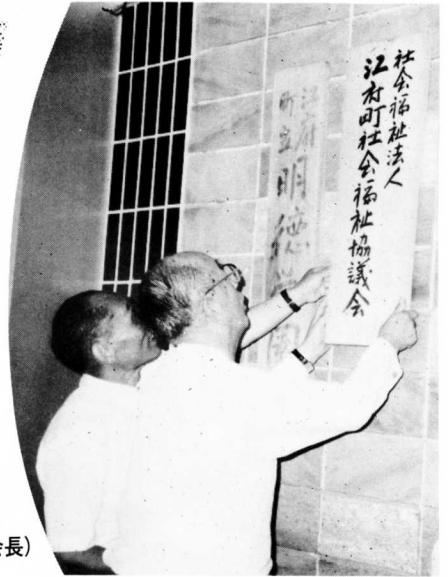 社会福祉法人
江府町社会福祉協議会
江府
町立明德学園
会長)